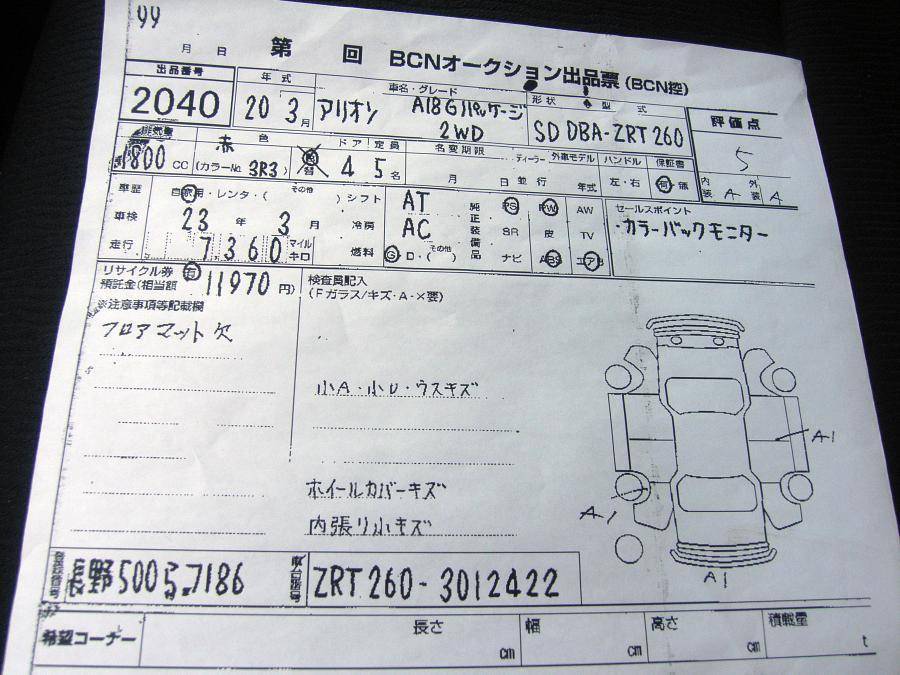 99
月 日 第 回 BCNオークション出品票 (BCN控)
出品番号 年式 車名・グレード 形状 型式 評価点
2040 20 3月 アリオン A18Gパッケージ 2WD SD DBA-ZRT260 5
排気量 色 ドア 定員 名変期限 ディーラー 外車モデル ハンドル 保証書 内装 A 外装 A
1800 CC 赤 (カラーNo. 3R3) 替 4 5名 月 日 並行 年式 左・右 有・無
車歴 自家用・レンタ・( その他 ) シフト AT 純正装備品 PS PW AW セールスポイント
車検 23年 3月 冷房 AC SR 皮 TV ・カラーバックモニター
走行 7360 マイル キロ 燃料 G D・( その他 ) ナビ ABS エアB
リサイクル券 有 預託金(相当額 11970 円) 検査員記入
(Fガラス/キズ・A-X要)
※注意事項等記載欄
フロアマット欠
小A・小U・ウスキズ
A1
ホイールカバーキズ
A1
内張り小キズ
A1
登録番号 長野500 7186 車台番号 ZRT260-3012422
希望コーナー 長さ cm 幅 cm 高さ cm 積載量 t